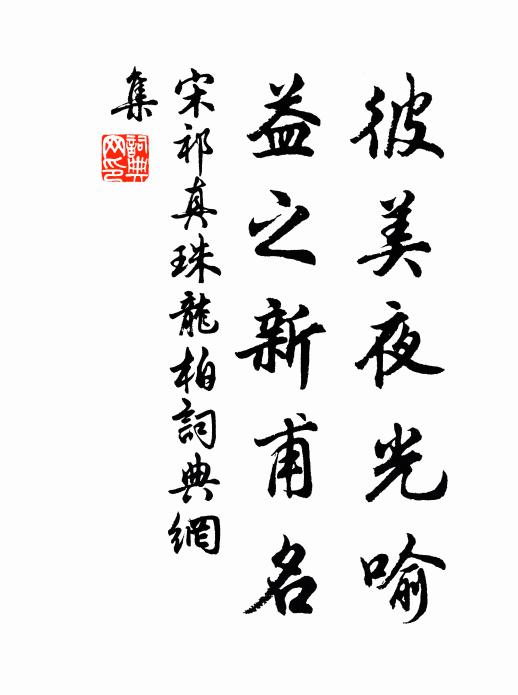 彼美夜光喻
益之新甫名
宋祁真珠龍柏詞典網
集
詞典网印